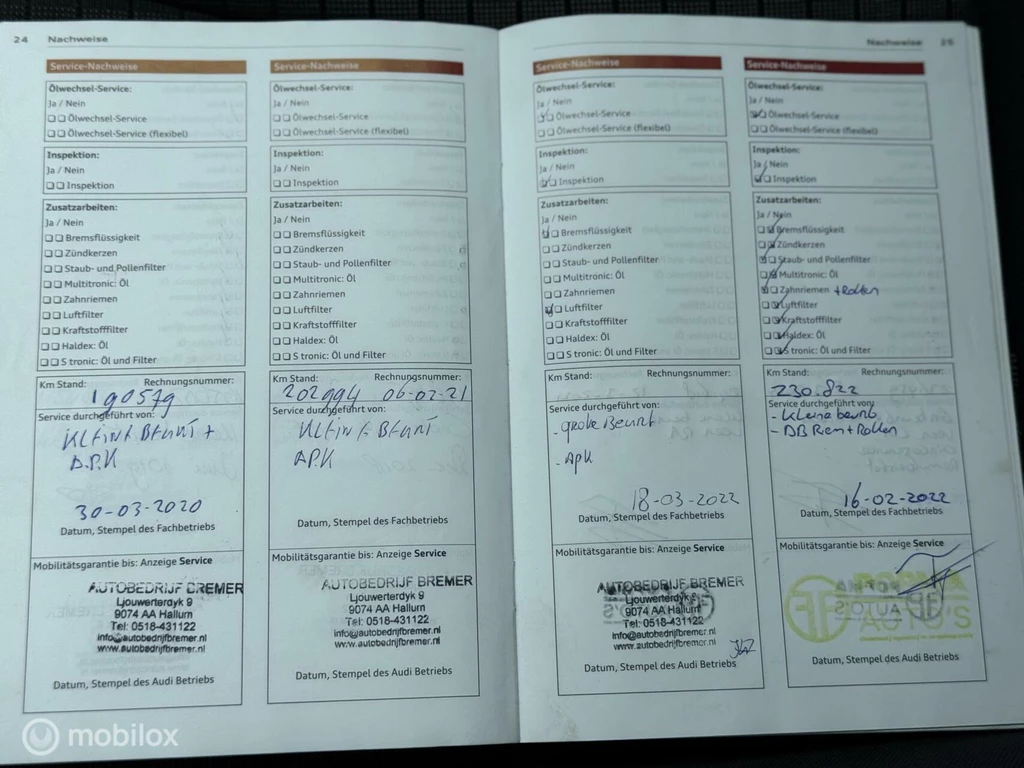 24 Nachweise
Service-Nachweise
Ölwechsel-Service:
Ja / Nein
Ölwechsel-Service
Ölwechsel-Service (flexibel)
Inspektion:
Ja / Nein
Inspektion
Zusatzarbeiten:
Ja / Nein
Bremsflüssigkeit
Zündkerzen
Staub- und Pollenfilter
Multitronic: Öl
Zahnriemen
Luftfilter
Kraftstofffilter
Haldex: Öl
S tronic: Öl und Filter
Km Stand: Rechnungsnummer:
190579
Service durchgeführt von:
A.P.K
30-03-2020
Datum, Stempel des Fachbetriebs
Mobilitätsgarantie bis: Anzeige Service
AUTOBEDRIJF BREMER
Ljouwerterdyk 9
9074 AA Hallum
Tel: 0518-431122
info@autobedrijfbremer.nl
www.autobedrijfbremer.nl
Datum, Stempel des Audi Betriebs
Service-Nachweise
Ölwechsel-Service:
Ja / Nein
Ölwechsel-Service
Ölwechsel-Service (flexibel)
Inspektion:
Ja / Nein
Inspektion
Zusatzarbeiten:
Ja / Nein
Bremsflüssigkeit
Zündkerzen
Staub- und Pollenfilter
Multitronic: Öl
Zahnriemen
Luftfilter
Kraftstofffilter
Haldex: Öl
S tronic: Öl und Filter
Km Stand: Rechnungsnummer:
202994 06-02-21
Service durchgeführt von:
APK
Datum, Stempel des Fachbetriebs
Mobilitätsgarantie bis: Anzeige Service
AUTOBEDRIJF BREMER
Ljouwerterdyk 9
9074 AA Hallum
Tel: 0518-431122
info@autobedrijfbremer.nl
www.autobedrijfbremer.nl
Datum, Stempel des Audi Betriebs
Nachweise 25
Service-Nachweise
Ölwechsel-Service:
Ja / Nein
Ölwechsel-Service
Ölwechsel-Service (flexibel)
Inspektion:
Ja / Nein
Inspektion
Zusatzarbeiten:
Ja / Nein
Bremsflüssigkeit
Zündkerzen
Staub- und Pollenfilter
Multitronic: Öl
Zahnriemen
Luftfilter
Kraftstofffilter
Haldex: Öl
S tronic: Öl und Filter
Km Stand: Rechnungsnummer:
Service durchgeführt von:
- grote Beurt
- Apk
18-03-2022
Datum, Stempel des Fachbetriebs
Mobilitätsgarantie bis: Anzeige Service
AUTOBEDRIJF BREMER
Ljouwerterdyk 9
9074 AA Hallum
Tel: 0518-431122
info@autobedrijfbremer.nl
www.autobedrijfbremer.nl
Datum, Stempel des Audi Betriebs
Service-Nachweise
Ölwechsel-Service:
Ja / Nein
Ölwechsel-Service
Ölwechsel-Service (flexibel)
Inspektion:
Ja / Nein
Inspektion
Zusatzarbeiten:
Ja / Nein
Bremsflüssigkeit
Zündkerzen
Staub- und Pollenfilter
Multitronic: Öl
Zahnriemen + Rollen
Luftfilter
Kraftstofffilter
Haldex: Öl
S tronic: Öl und Filter
Km Stand: Rechnungsnummer:
230.822
Service durchgeführt von:
- Kleine beurt
- DB Riem + Rollen
16-02-2022
Datum, Stempel des Fachbetriebs
Mobilitätsgarantie bis: Anzeige Service
AUTO'S
Datum, Stempel des Audi Betriebs
mobilox